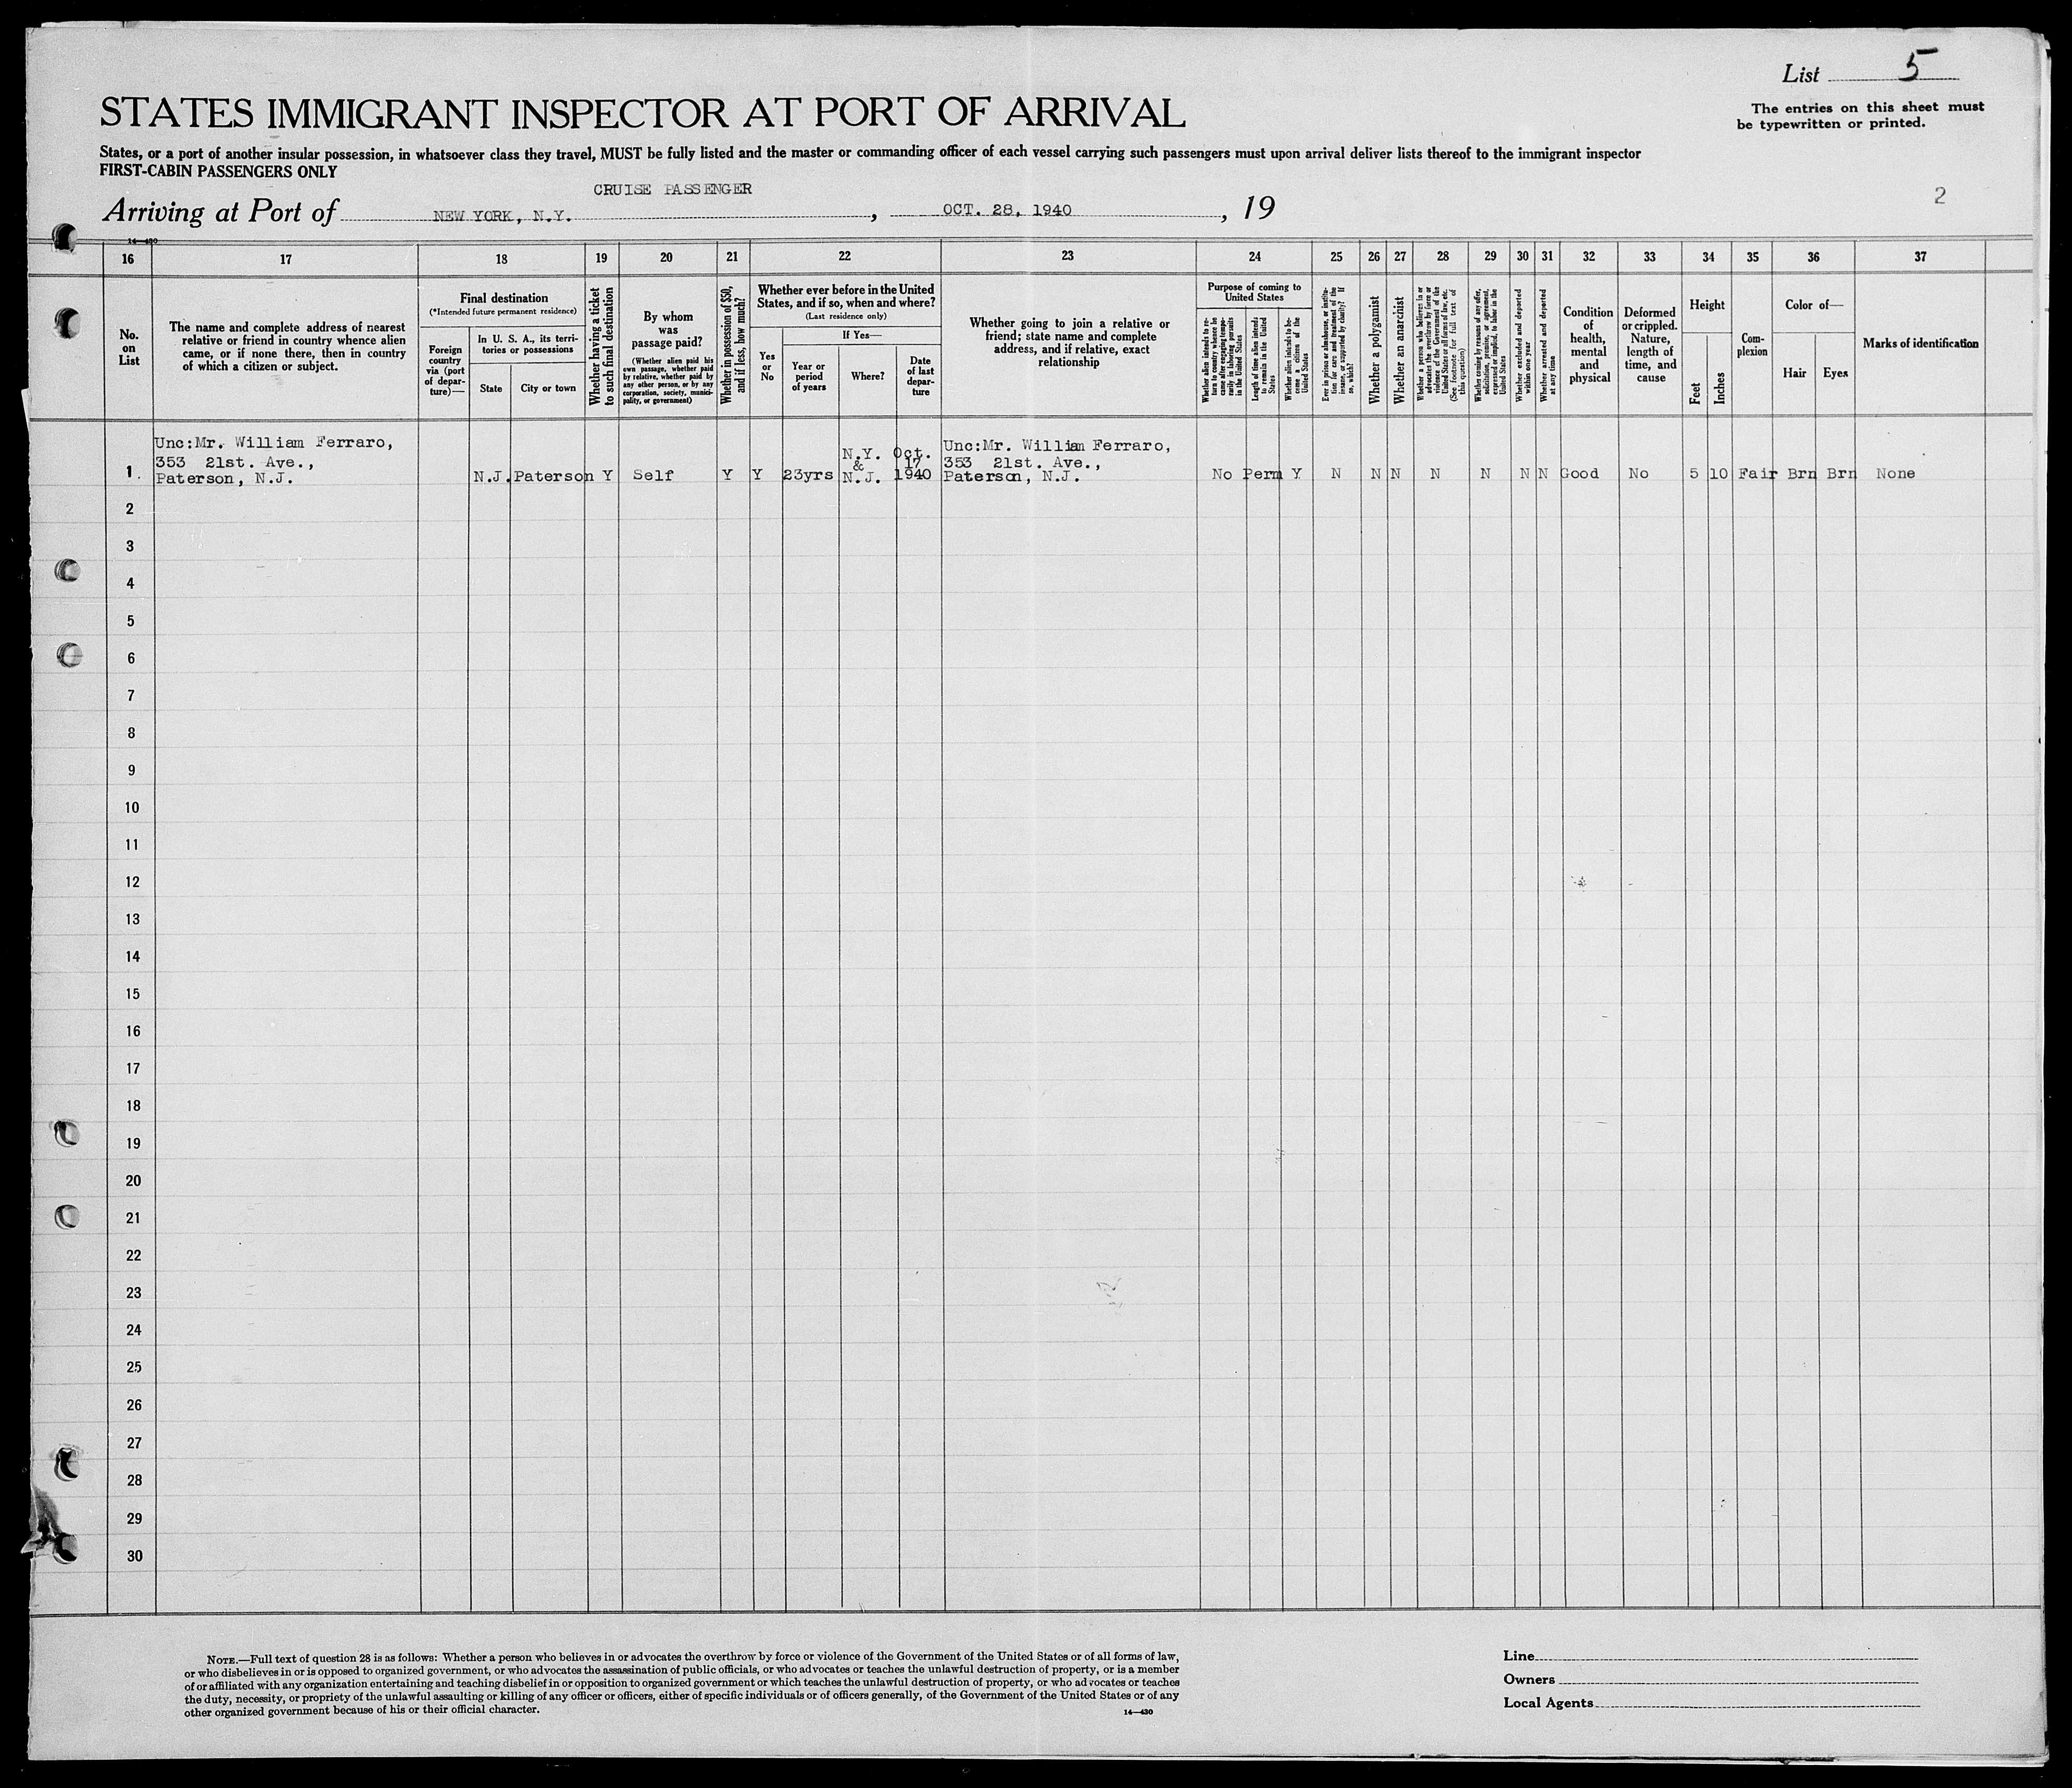 List 5
The entries on this sheet must
be typewritten or printed.
STATES IMMIGRANT INSPECTOR AT PORT OF ARRIVAL
States, or a port of another insular possession, in whatsoever class they travel, MUST be fully listed and the master or commanding officer of each vessel carrying such passengers must upon arrival deliver lists thereof to the immigrant inspector
FIRST-CABIN PASSENGERS ONLY
CRUISE PASSENGER
Arriving at Port of NEW YORK, N.Y. , OCT. 28, 1940 , 19
2
14—430
16 17 18 19 20 21 22 23 24 25 26 27 28 29 30 31 32 33 34 35 36 37
No.
on
List
The name and complete address of nearest
relative or friend in country whence alien
came, or if none there, then in country
of which a citizen or subject.
Final destination
(*Intended future permanent residence)
Foreign
country
via (port
of depar-
ture)—
In U. S. A., its terri-
tories or possessions
State
City or town
Whether having a ticket
to such final destination
By whom
was
passage paid?
(Whether alien paid his
own passage, whether paid
by relative, whether paid by
any other person, or by any
corporation, society, munici-
pality, or government)
Whether in possession of $50,
and if less, how much?
Whether ever before in the United
States, and if so, when and where?
(Last residence only)
Yes
or
No
If Yes—
Year or
period
of years
Where?
Date
of last
depar-
ture
Whether going to join a relative or
friend; state name and complete
address, and if relative, exact
relationship
Purpose of coming to
United States
Whether alien intends to re-
turn to country whence he
came after engaging tempo-
rarily in laboring pursuits
in the United States
Length of time alien intends
to remain in the United
States
Whether alien intends to be-
come a citizen of the
United States
Ever in prison or almshouse, or institu-
tion for care and treatment of the
insane, or supported by charity? If
so, which?
Whether a polygamist
Whether an anarchist
Whether a person who believes in or
advocates the overthrow by force or
violence of the Government of the
United States or all forms of law, etc.
(See footnote for full text of
this question)
Whether coming by reasons of any offer,
solicitation, promise, or agreement,
expressed or implied, to labor in the
United States
Whether excluded and deported
within one year
Whether arrested and deported
at any time
Condition
of
health,
mental
and
physical
Deformed
or crippled.
Nature,
length of
time, and
cause
Height
Feet
Inches
Com-
plexion
Color of—
Hair
Eyes
Marks of identification
Unc:Mr. William Ferraro,
353 21st. Ave.,
Paterson, N.J.
1 N.J. Paterson Y Self Y Y 23yrs
N.Y.
&
N.J.
Oct.
17
1940
Unc:Mr. William Ferraro,
353 21st. Ave.,
Paterson, N.J.
No Perm Y N N N N N N N Good No 5 10 Fair Brn Brn None
2
3
4
5
6
7
8
9
10
11
12
13
14
15
16
17
18
19
20
21
22
23
24
25
26
27
28
29
30
NOTE.—Full text of question 28 is as follows: Whether a person who believes in or advocates the overthrow by force or violence of the Government of the United States or of all forms of law,
or who disbelieves in or is opposed to organized government, or who advocates the assassination of public officials, or who advocates or teaches the unlawful destruction of property, or is a member
of or affiliated with any organization entertaining and teaching disbelief in or opposition to organized government or which teaches the unlawful destruction of property, or who advocates or teaches
the duty, necessity, or propriety of the unlawful assaulting or killing of any officer or officers, either of specific individuals or of officers generally, of the Government of the United States or of any
other organized government because of his or their official character.
14—430
Line
Owners
Local Agents